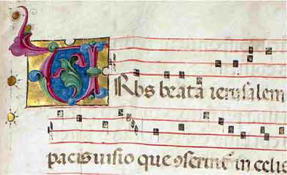 Urbs beata ierusalem
pacis uisio que ꝯstruit᷑ in celis